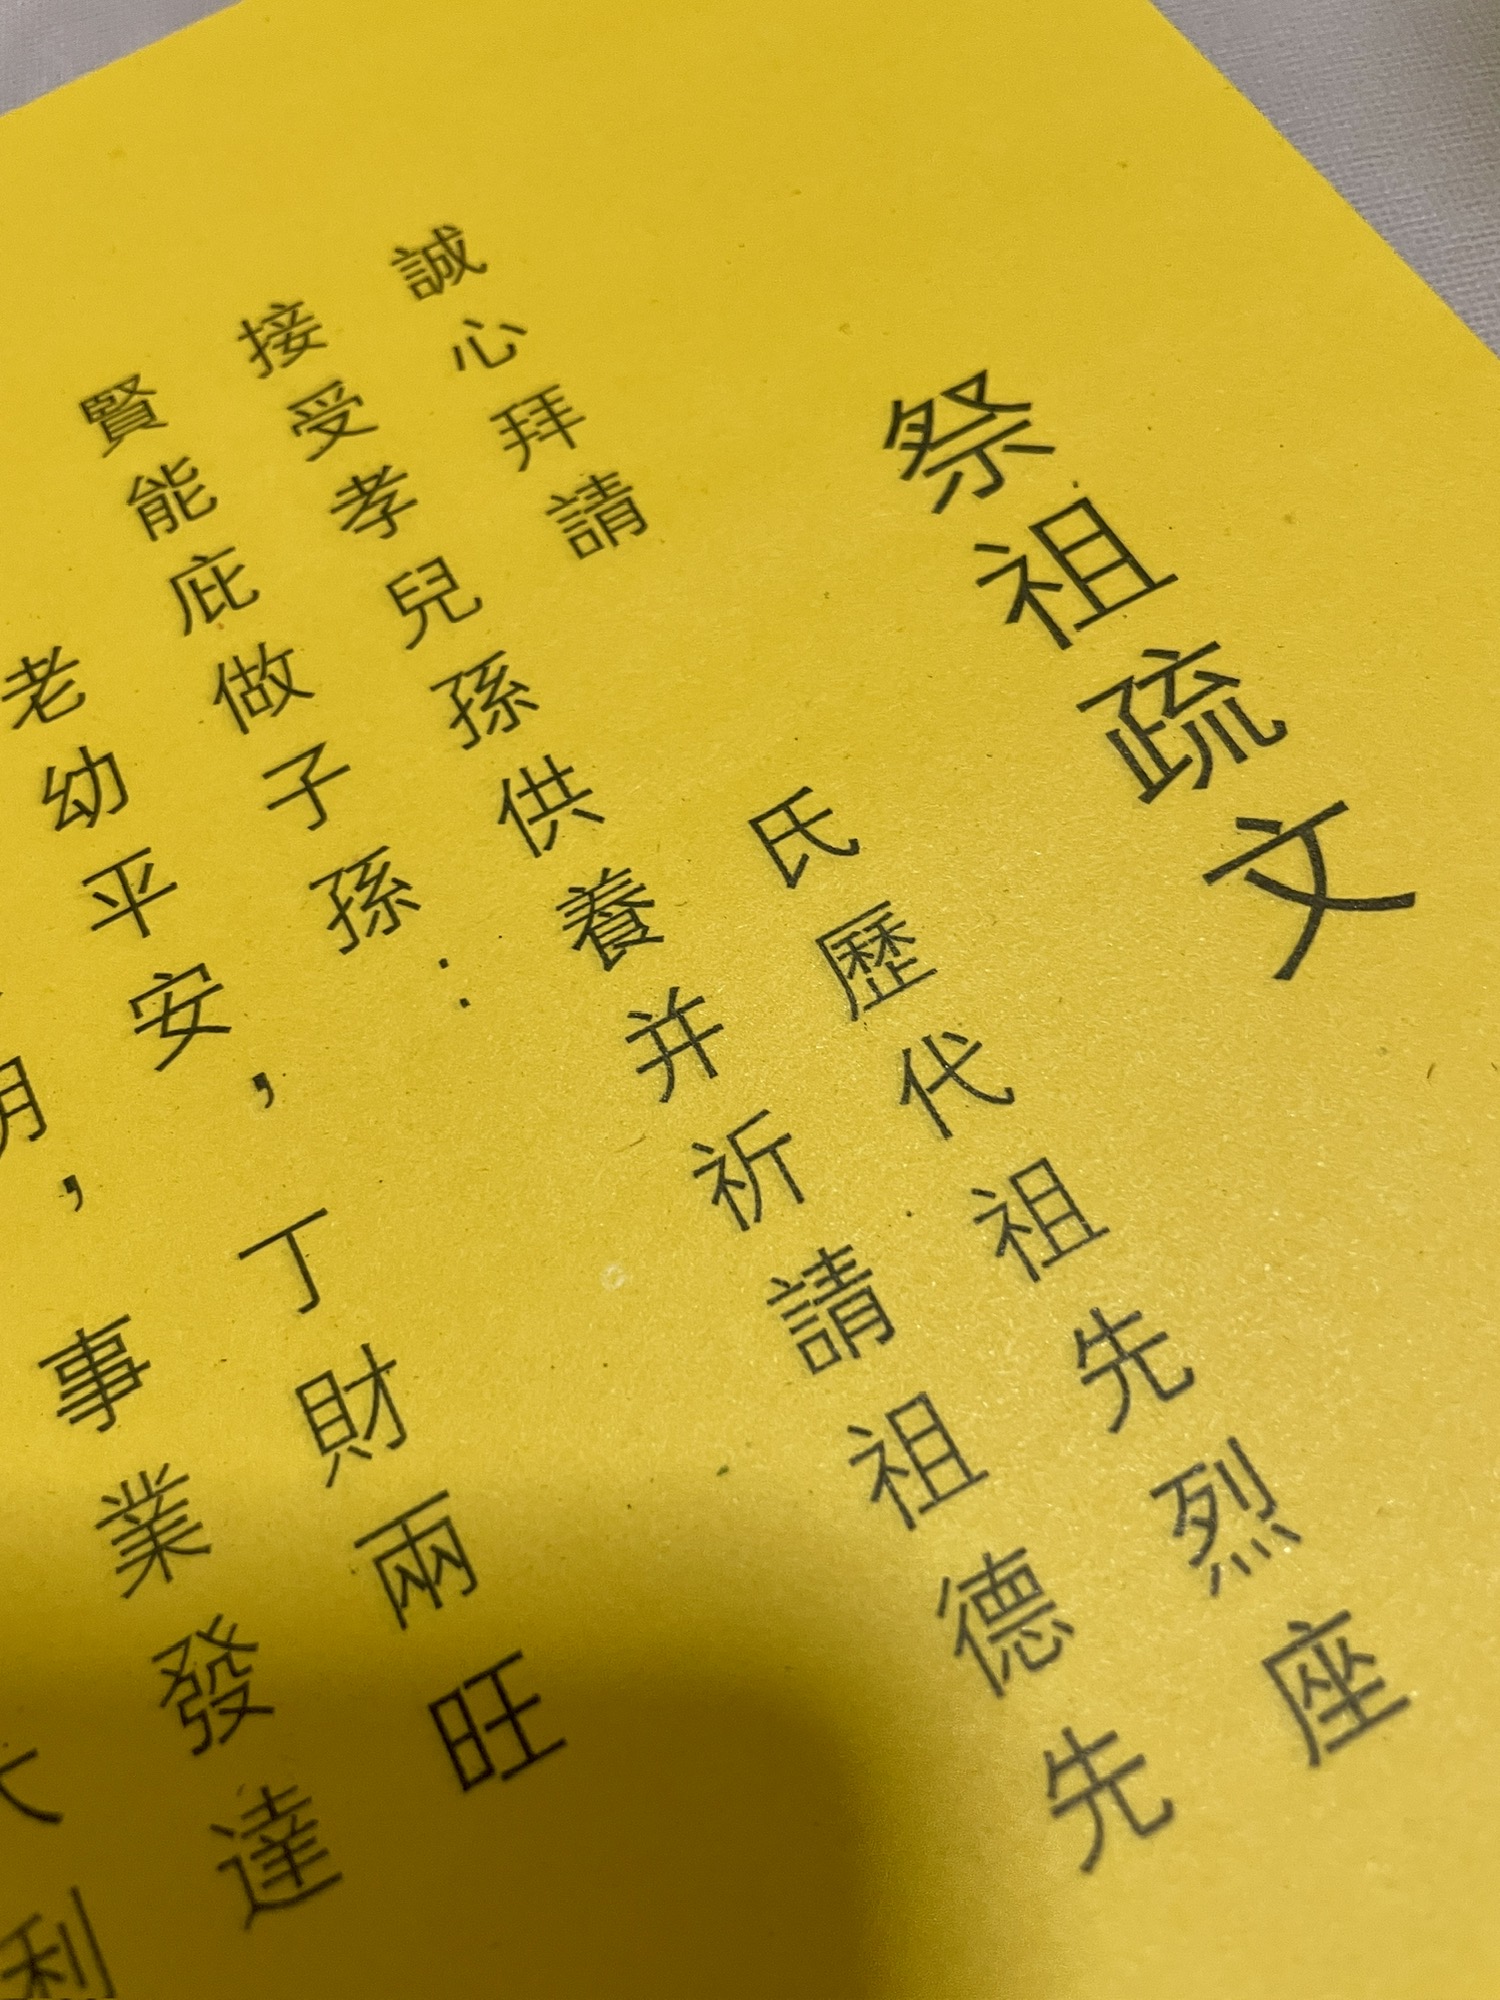 祭祖疏文
誠心拜請 氏歷代祖先烈座
接受孝兒孫供養并祈請祖德先
賢能庇做子孫：
老幼平安，丁財兩旺
明，事業發達
大利